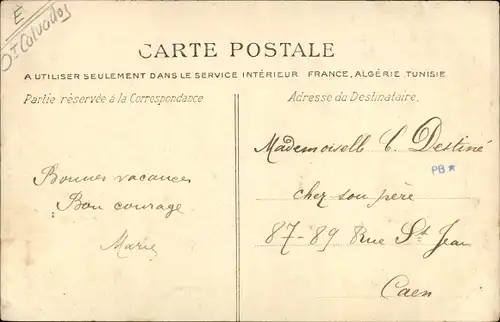 E
Dt Calvados
CARTE POSTALE
A UTILISER SEULEMENT DANS LE SERVICE INTÉRIEUR FRANCE, ALGÉRIE TUNISIE
Partie réservée à la Correspondance
Adresse du Destinataire.
Bonnes vacances
Bon courage
Marie
Mademoiselle C. Destiné
PB*
chez son père
87-89 Rue St Jean
Caen